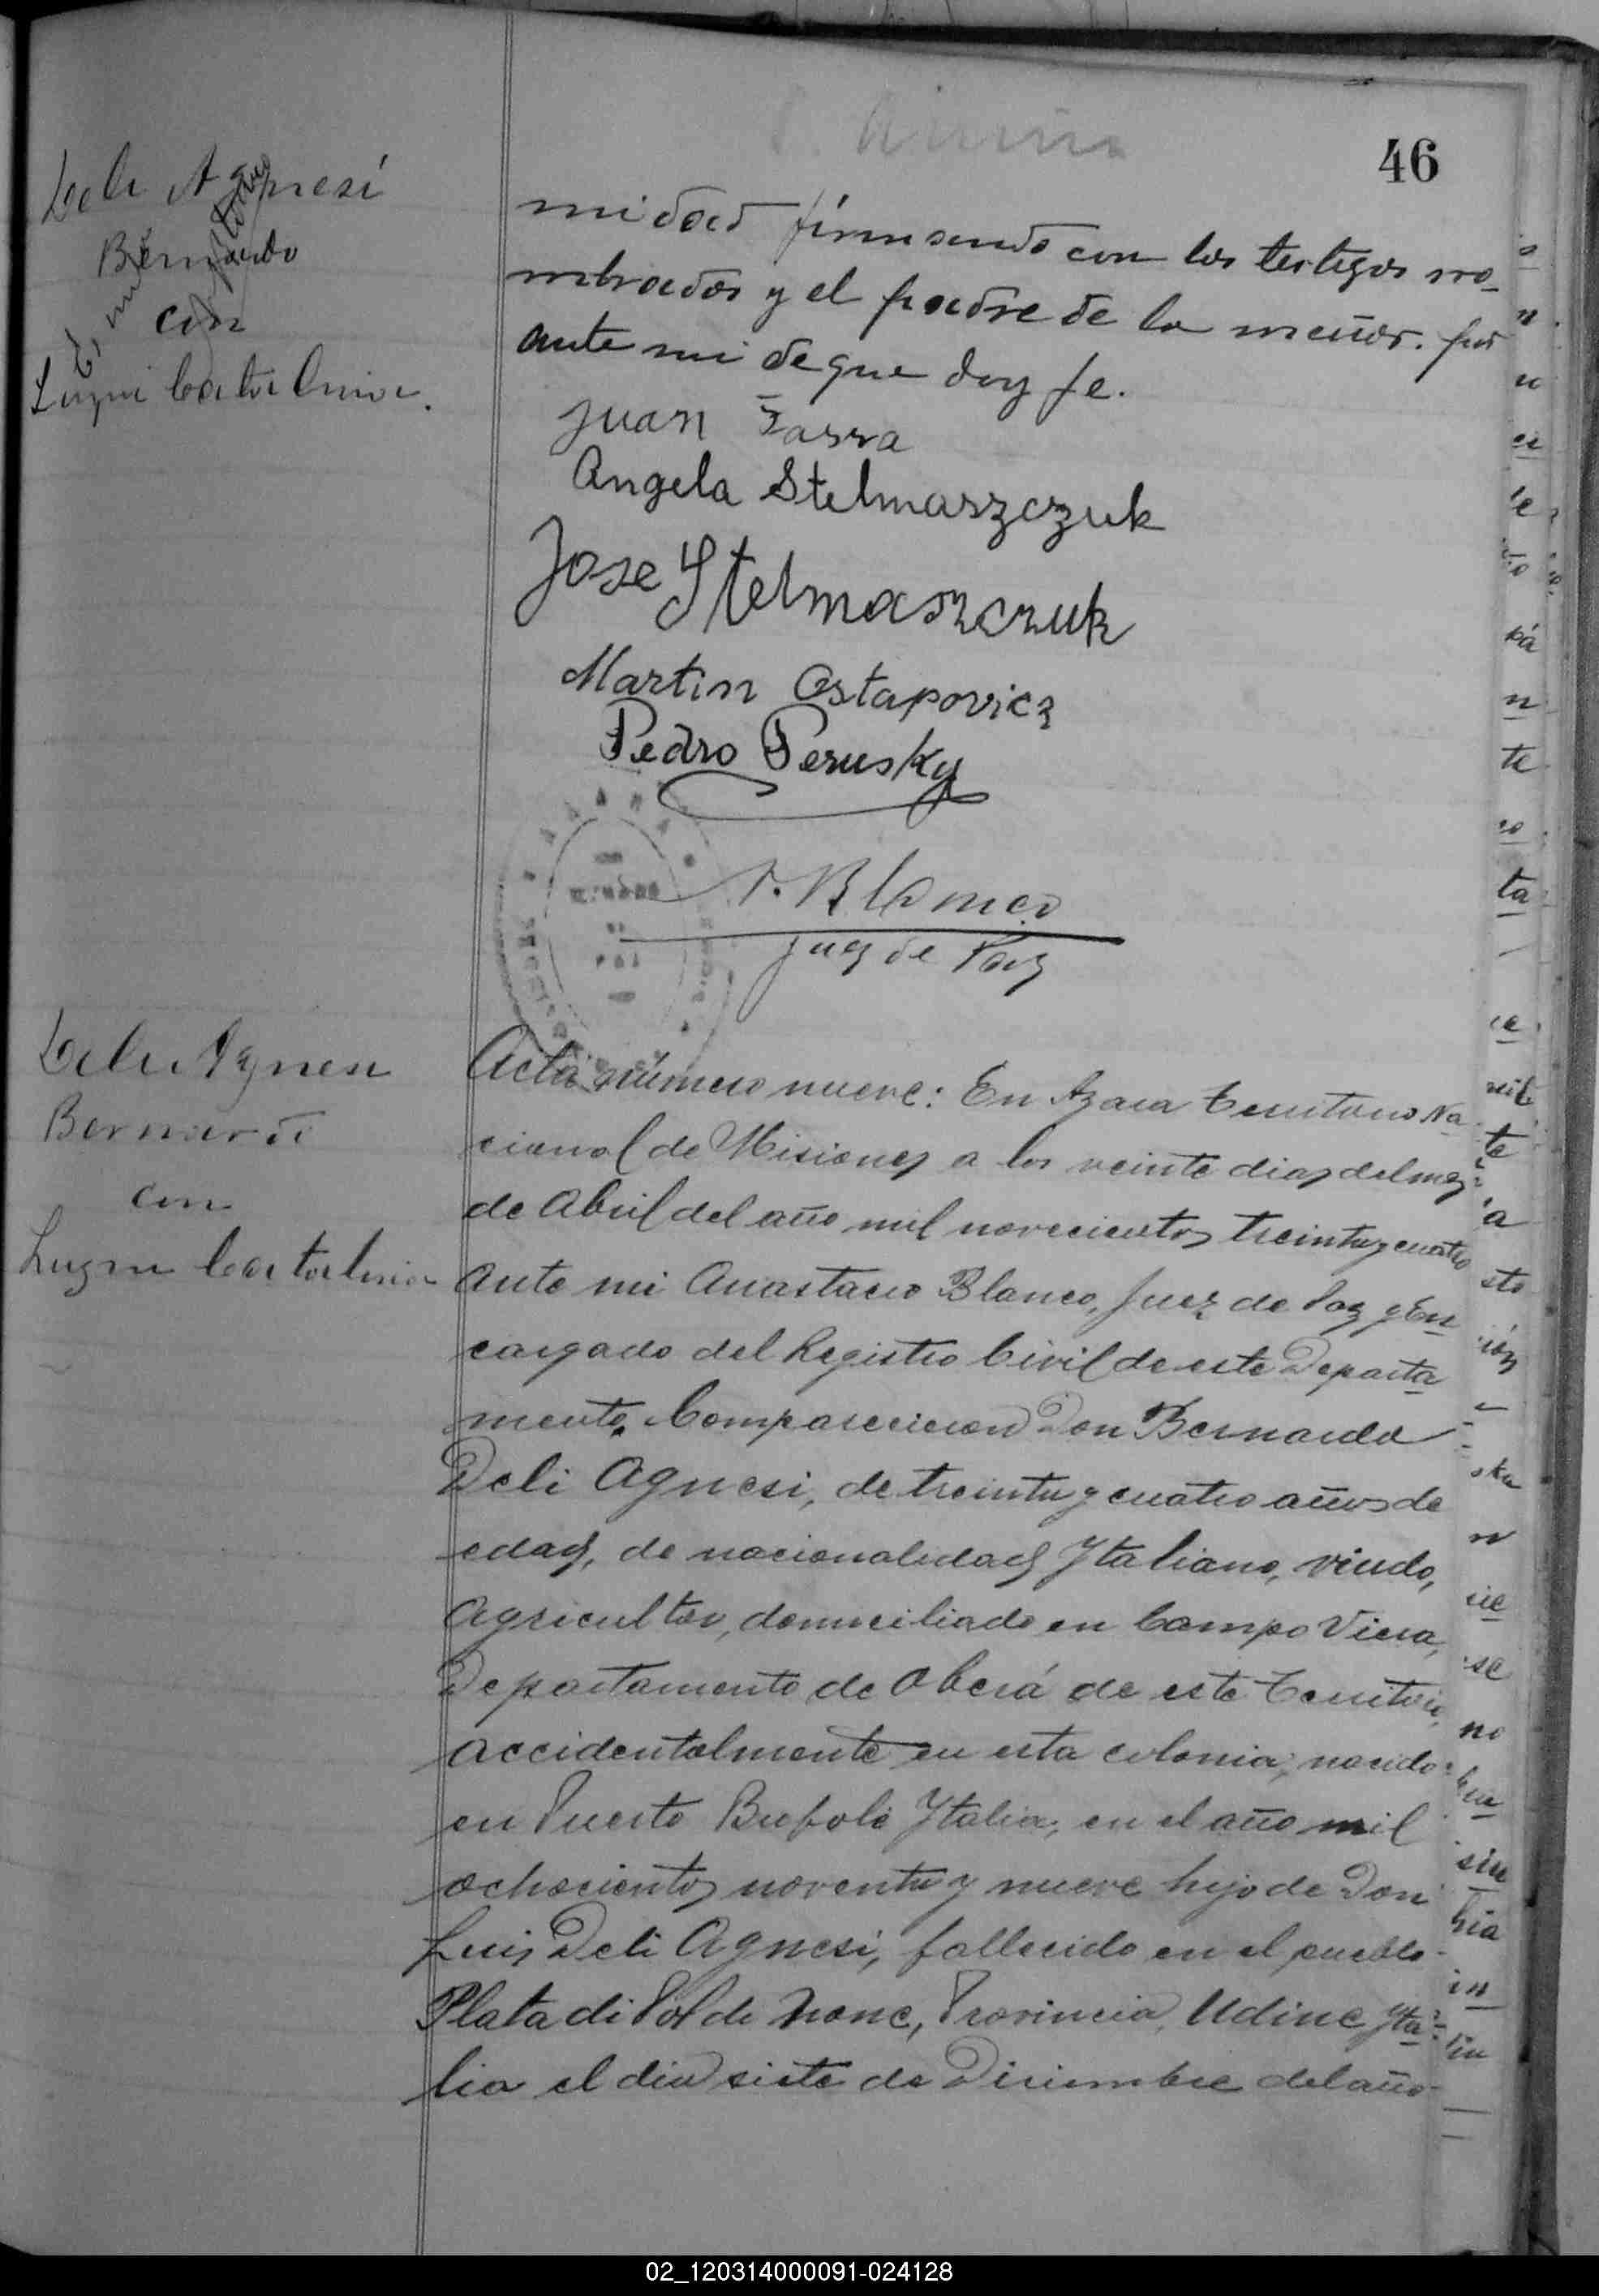 46
Deli Agnesi
Bernardo
con
Luzni Catalina.
midad firmando con los testigos no-
mbrados y el padre de la menor. por
ante mi de que doy fe.
Juan Zarra
Angela Stelmaszczuk
Jose Stelmaszczuk
Martin Ostapovicz
Pedro Perusky
A. Blanco
Juez de Paz
Deli Agnesi
Bernardo
con
Luzni Catalina
Acta número nueve: En Azara Territorio Na-
cional de Misiones a los veinte dias del mes
de Abril del año mil novecientos treinta y cuatro
ante mi Anastacio Blanco, Juez de Paz y En-
cargado del Registro Civil de este Departa-
mento, Comparecieron Don Bernardo
Deli Agnesi, de treinta y cuatro años de
edad, de nacionalidad Ytaliano, viudo,
Agricultor, domiciliado en Campo Viera,
Departamento de Oberá de este Territorio,
accidentalmente en esta colonia, nacido
en Puerto Bufolé Ytalia, en el año mil
ochocientos noventa y nueve hijo de Don
Luis Deli Agnesi, fallecido en el pueblo
Plata di Pol de None, Provincia Udine Yta-
lia el dia siete de Diciembre del año
02_120314000091-024128